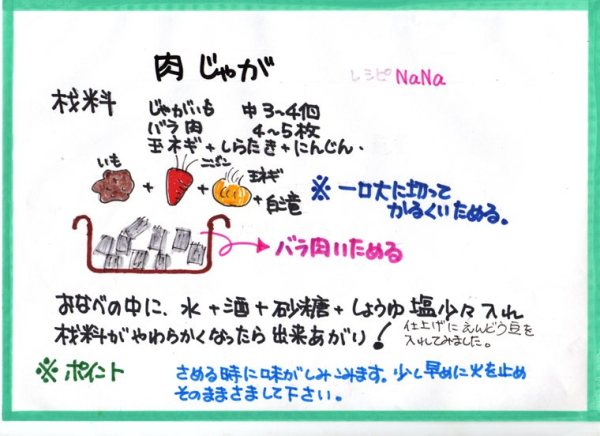 肉じゃが
レシピ NaNa
材料 じゃがいも 中3~4個
バラ肉 4~5枚
玉ネギ+しらたき+にんじん.
いも + ニンジン + 玉ネギ + 白竜
※ 一口大に切って
かるくいためる。
バラ肉いためる
おなべの中に、水+酒+砂糖+しょうゆ 塩少々入れ
材料がやわらかくなったら出来あがり!
仕上げにえんどう豆を
入れてみました。
※ ポイント さめる時に味がしみこみます。少し早めに火を止め
そのままさまして下さい。